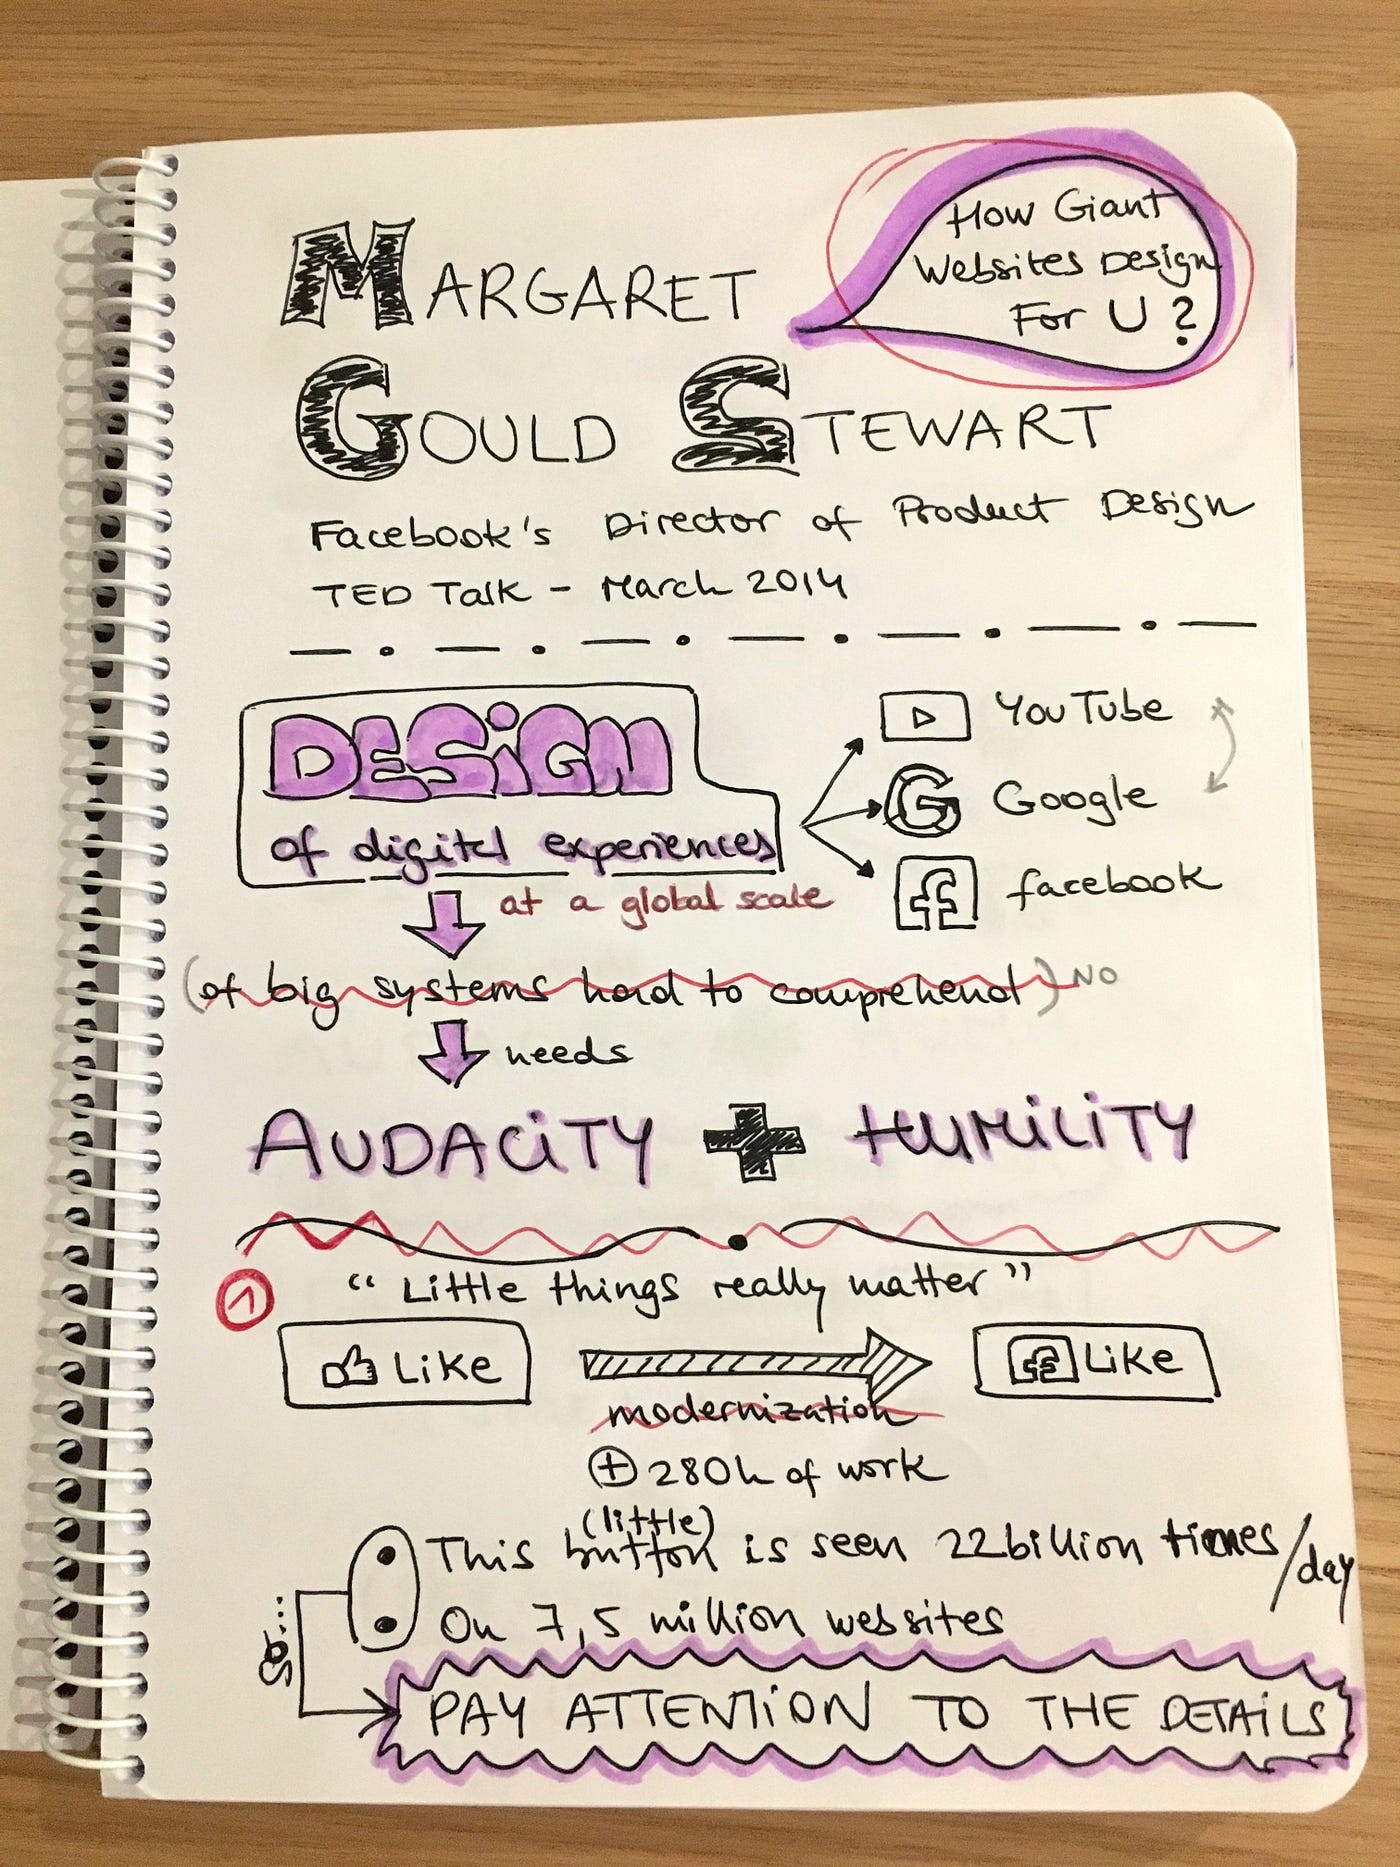 How Giant
Websites Design
For U ?
MARGARET
GOULD STEWART
Facebook's Director of Product Design
TED Talk - March 2014
DESiGN
of digital experiences
YouTube
Google
facebook
at a global scale
(of big systems hard to comprehend) NO
needs
AUDACiTY + HUMiLiTY
1 "Little things really matter"
Like
Like
modernization
+ 280h of work
(little)
This button is seen 22billion times/day
On 7,5 million websites
So...
PAY ATTENTiON TO THE DETAiLS